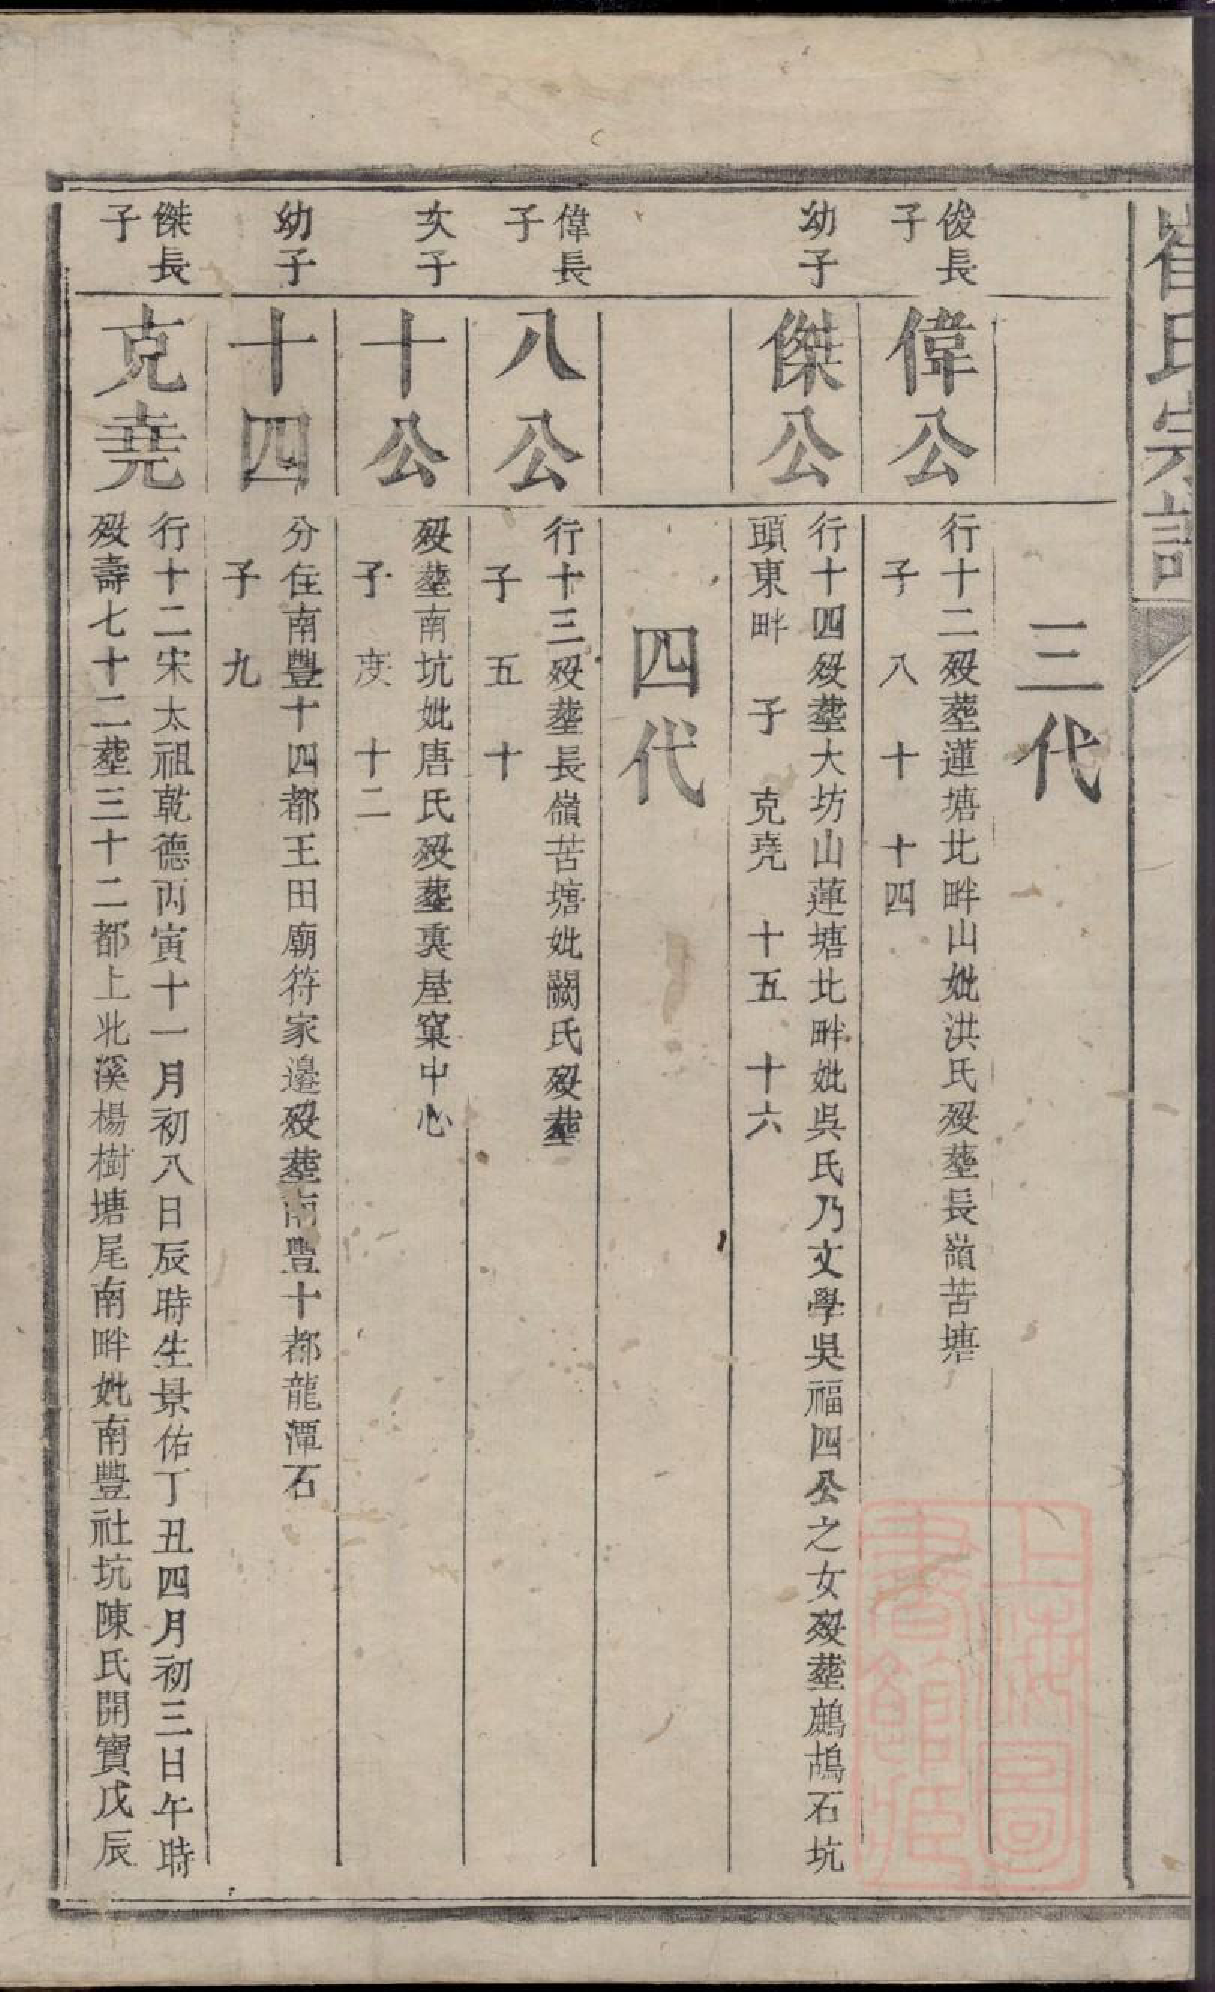 崔氏宗譜
三代
俊長
子
偉公
行十二殁塟蓮塘北畔山妣洪氏殁塟長嶺苦塘
子 八 十 十四
幼子
傑公
行十四殁塟大坊山蓮塘北畔妣吳氏乃文學吳福四公之女殁塟鷓鴣石坑
頭東畔 子 克堯 十五 十六
四代
偉長
子
八公
行十三殁塟長嶺苦塘妣闕氏殁塟
子 五 十
次子
十公
殁塟南坑妣唐氏殁塟裏屋窠中心
子 度 十二
幼子
十四
分住南豐十四都王田廟符家邉殁塟南豐十都龍潭石
子 九
傑長
子
克堯
行十二宋太祖乾德丙寅十一月初八日辰時生景佑丁丑四月初三日午時
殁壽七十二塟三十二都上北溪楊樹塘尾南畔妣南豐社坑陳氏開寶戊辰
上海圖
書館藏